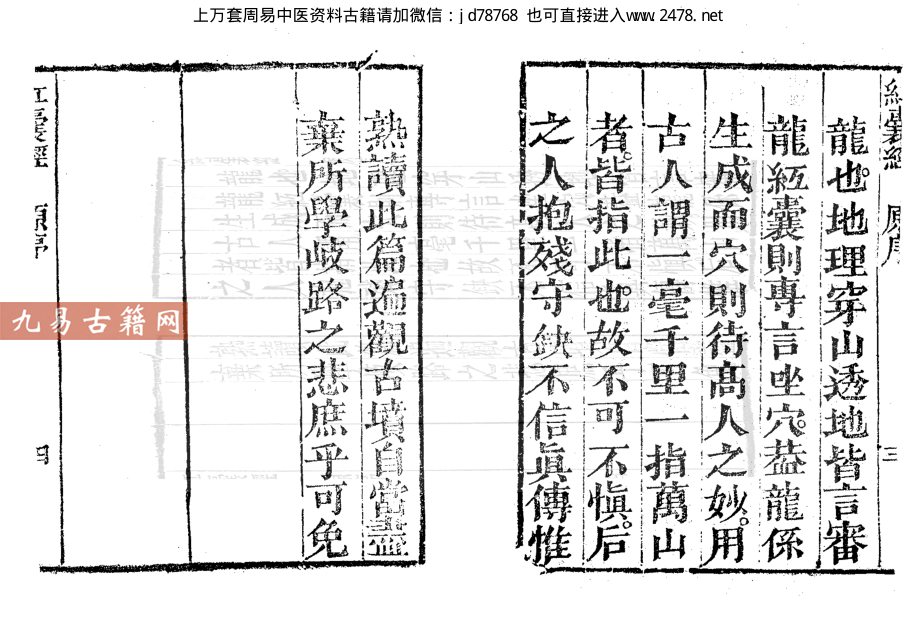 上万套周易中医资料古籍请加微信：jd78768 也可直接进入www.2478.net
紅囊經 原序 三
龍也。地理穿山透地皆言審
龍紅囊則專言坐穴。葢龍係
生成而穴則待高人之妙。用
古人謂一毫千里一指萬山
者。皆指此也。故不可不愼。后
之人抱殘守缺不信眞傳惟
熟讀此篇遍觀古墳自當盡
棄所學岐路之悲庶乎可免
紅囊經 原序 四
九易古籍网